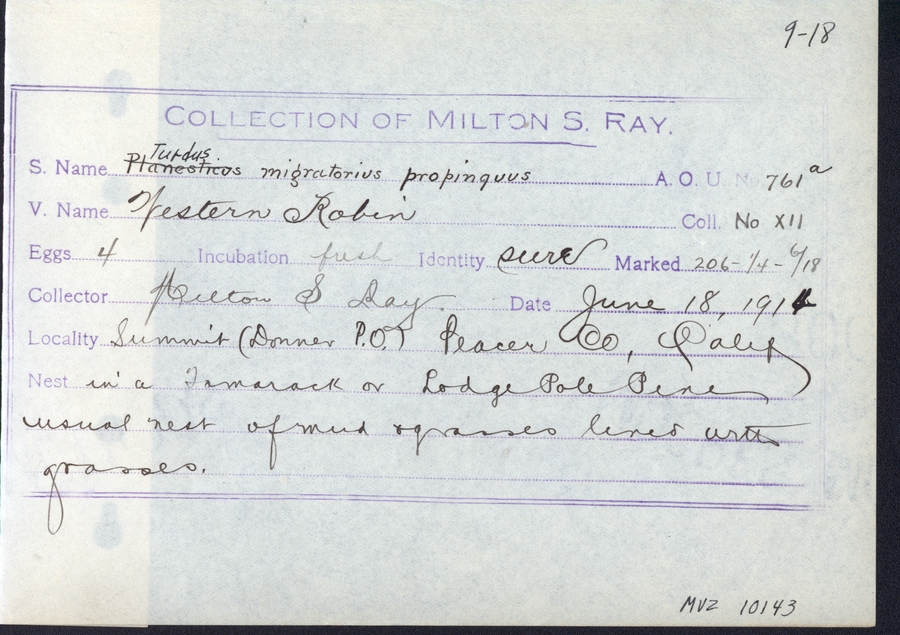 9-18
COLLECTION OF MILTON S. RAY.
Turdus
S. Name Planesticus migratorius propinquus A. O. U. No 761a
V. Name Western Robin Coll. No XII
Eggs 4 Incubation fresh Identity sure Marked 206-1/4-6/18
Collector Milton S Ray. Date June 18, 1914
Locality Summit (Donner P.O.) Placer Co, Calif
Nest in a Tamarack or Lodge Pole Pine
usual nest of mud & grasses lined with
grasses.
MVZ 10143